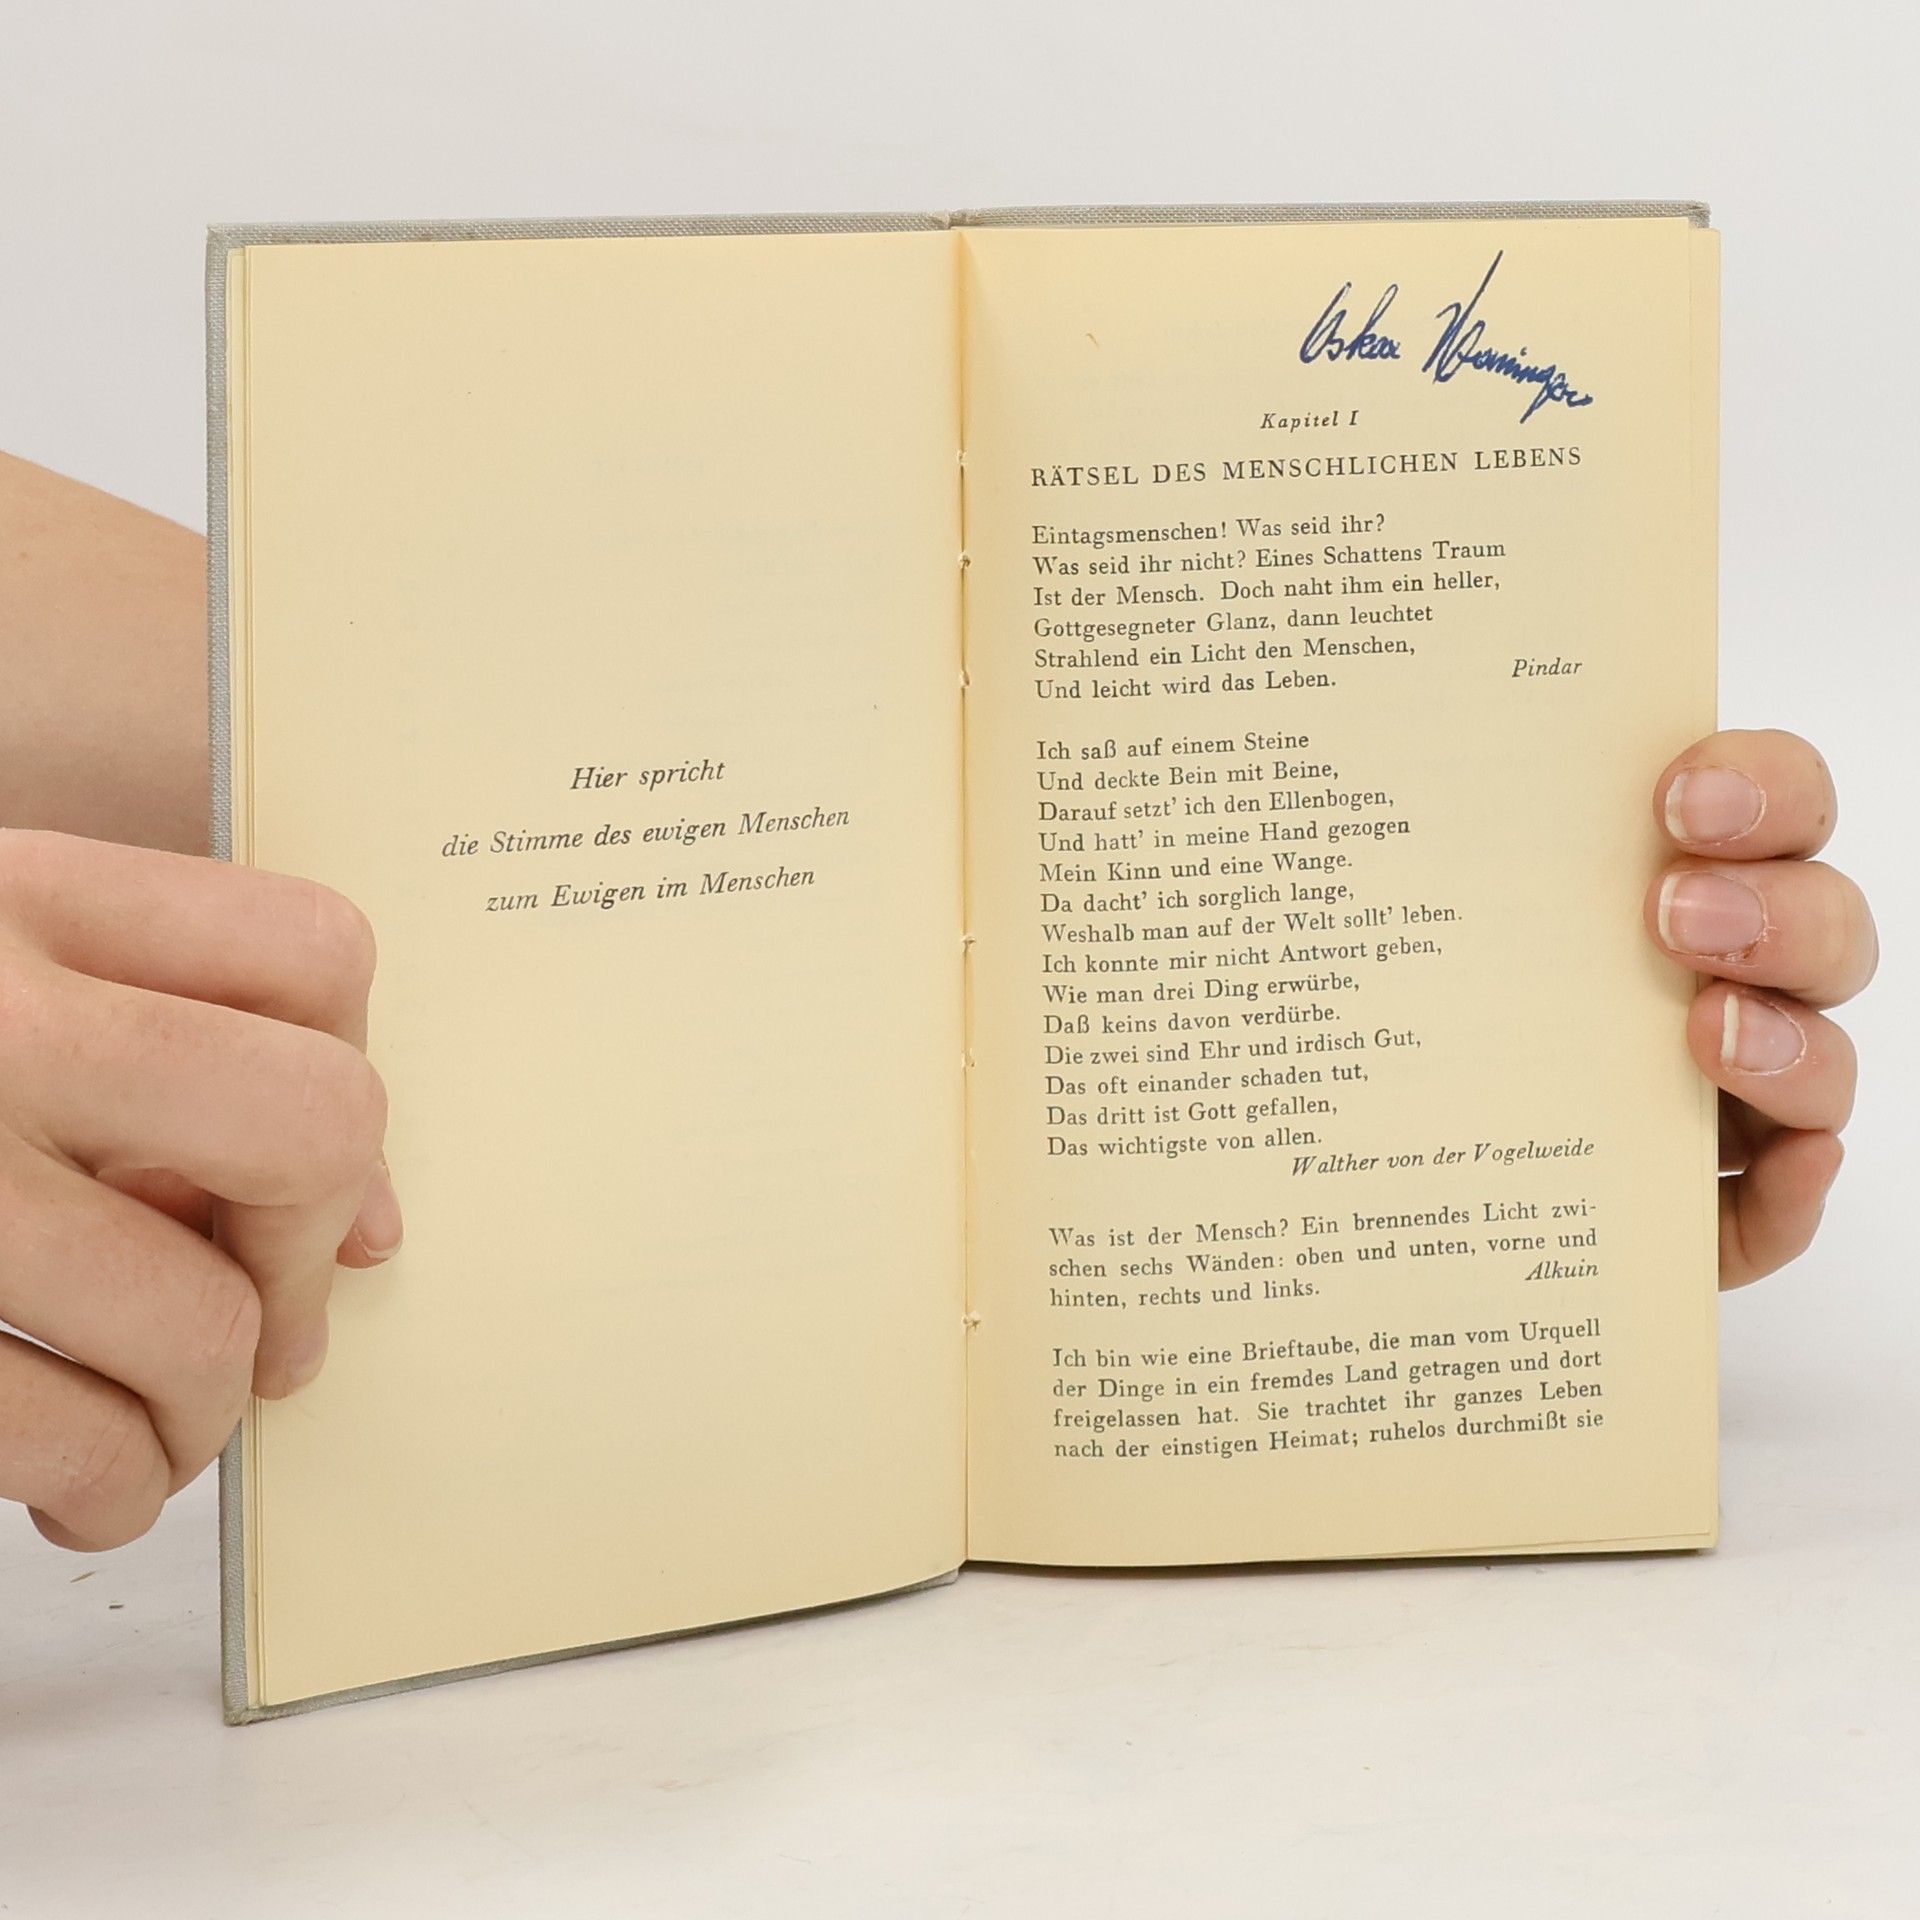 Hier spricht
die Stimme des ewigen Menschen
zum Ewigen im Menschen
Oskar
Kapitel I
RÄTSEL DES MENSCHLICHEN LEBENS
Eintagsmenschen! Was seid ihr?
Was seid ihr nicht? Eines Schattens Traum
Ist der Mensch. Doch naht ihm ein heller,
Gottgesegneter Glanz, dann leuchtet
Strahlend ein Licht den Menschen,
Und leicht wird das Leben.
Pindar
Ich saß auf einem Steine
Und deckte Bein mit Beine,
Darauf setzt' ich den Ellenbogen,
Und hatt' in meine Hand gezogen
Mein Kinn und eine Wange.
Da dacht' ich sorglich lange,
Weshalb man auf der Welt sollt' leben.
Ich konnte mir nicht Antwort geben,
Wie man drei Ding erwürbe,
Daß keins davon verdürbe.
Die zwei sind Ehr und irdisch Gut,
Das oft einander schaden tut,
Das dritt ist Gott gefallen,
Das wichtigste von allen.
Walther von der Vogelweide
Was ist der Mensch? Ein brennendes Licht zwi-
schen sechs Wänden: oben und unten, vorne und
hinten, rechts und links.
Alkuin
Ich bin wie eine Brieftaube, die man vom Urquell
der Dinge in ein fremdes Land getragen und dort
freigelassen hat. Sie trachtet ihr ganzes Leben
nach der einstigen Heimat; ruhelos durchmißt sie